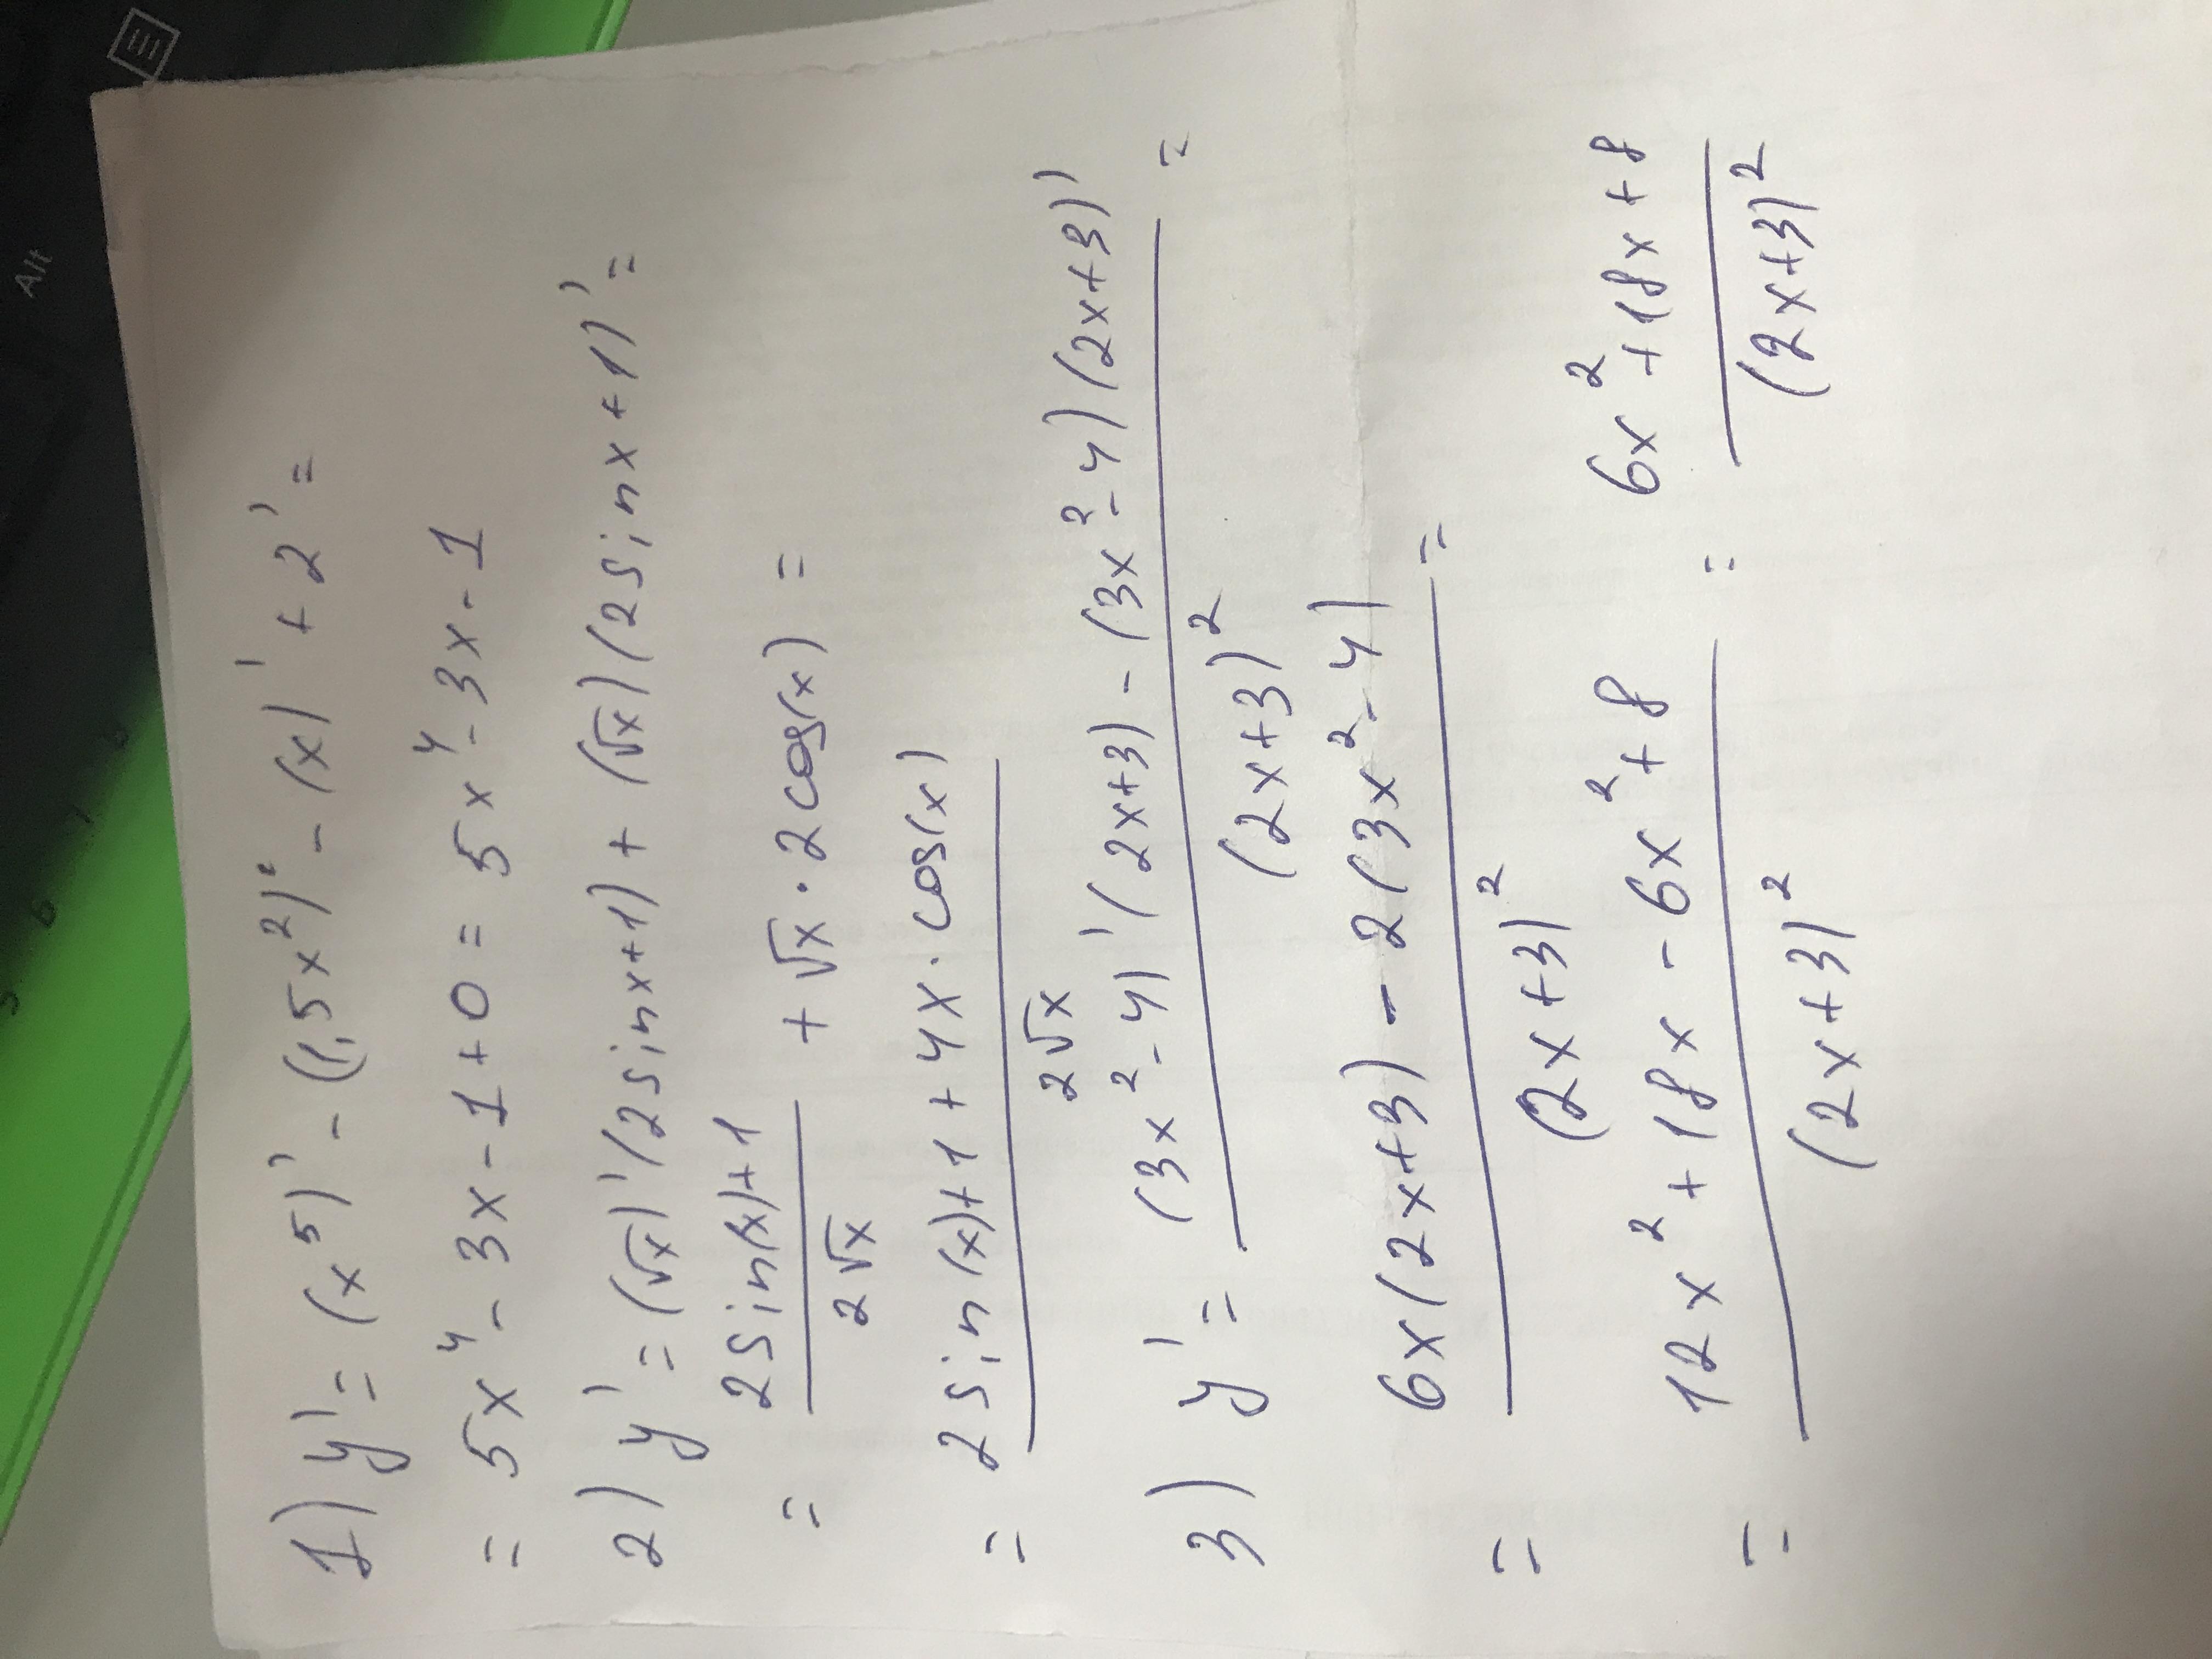 Alt
6
1) y' = (x⁵)' - (1,5x²)' - (x)' + 2' =
= 5x⁴ - 3x - 1 + 0 = 5x⁴ - 3x - 1
2) y' = (√x)'(2sinx+1) + (√x)(2sinx+1)' =
= (2sin(x)+1)/(2√x) + √x · 2cos(x) =
= (2sin(x)+1+4x·cos(x))/(2√x)
3) y' = ((3x²-4)'(2x+3) - (3x²-4)(2x+3)')/(2x+3)² =
= (6x(2x+3) - 2(3x²-4))/(2x+3)² =
= (12x²+18x-6x²+8)/(2x+3)² = (6x²+18x+8)/(2x+3)²